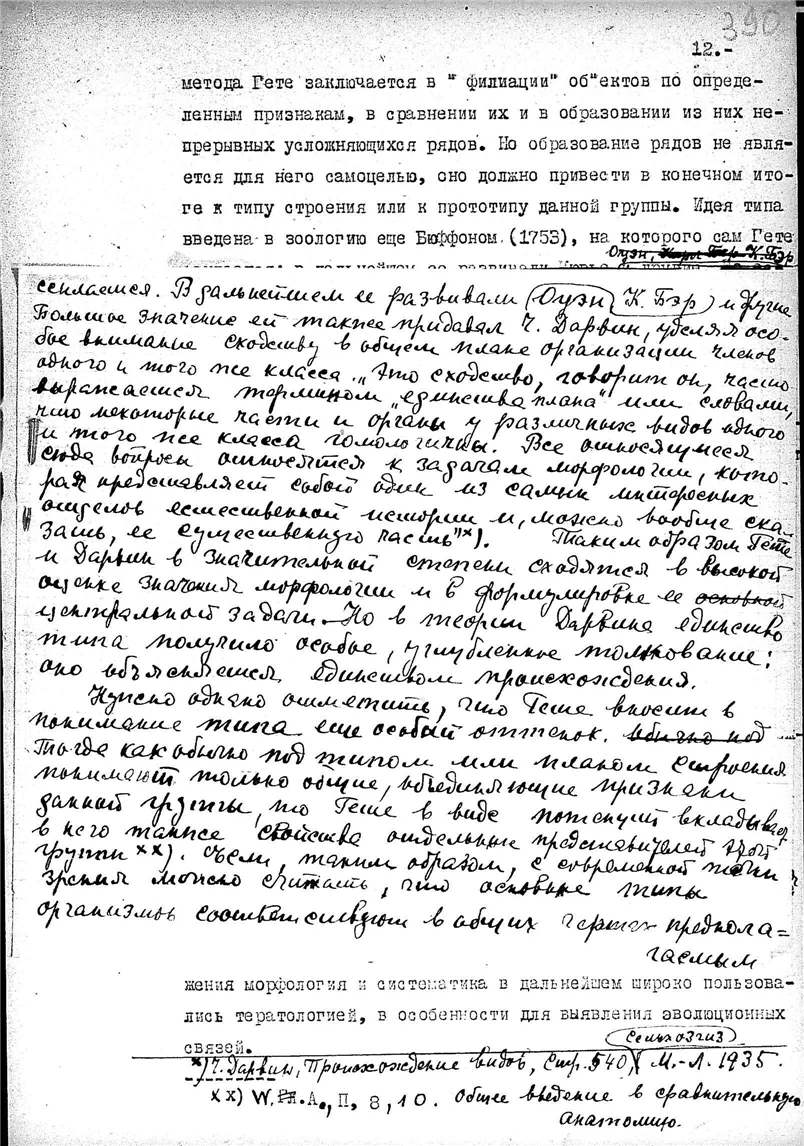 390
12.-
метода Гете заключается в " филиации" об"ектов по опреде-
ленным признакам, в сравнении их и в образовании из них не-
прерывных усложняющихся рядов. Но образование рядов не явля-
ется для него самоцелью, оно должно привести в конечном ито-
ге к типу строения или к прототипу данной группы. Идея типа
введена в зоологию еще Бюффоном (1753), на которого сам Гете
Оуэн, Карл Бэр К. Бэр
ссылается. В дальнейшем ее развивали Оуэн К. Бэр и другие
Большое значение ей также придавал Ч. Дарвин, уделяя осо-
бое внимание сходству в общем плане организации членов
одного и того же класса. "Это сходство, говорит он, часто
выражается термином "единства плана" или словами,
что некоторые части и органы у различных видов одного
и того же класса гомологичны. Все относящиеся
сюда вопросы относятся к задачам морфологии, кото-
рая представляет собой один из самых интересных
отделов естественной истории и, можно вообще ска-
зать, ее существенную часть" x). Таким образом Гете
и Дарвин в значительной степени сходятся в высокой
оценке значения морфологии и в формулировке ее основной
центральной задачи. Но в теории Дарвина единство
типа получило особое, углубленное толкование:
оно объясняется единством происхождения.
Нужно однако отметить, что Гете вносит в
понимание типа еще особый оттенок. обычно под
Тогда как обычно под типом или планом строения
понимают только общие, объединяющие признаки
данной группы, то Гете в виде потенций вкладывает
в него также свойства отдельных представителей этой
группы xx). Если, таким образом, с современной точки
зрения можно считать, что основные типы
организмов соответствуют в общих чертах предпола=
гаемым
жения морфология и систематика в дальнейшем широко пользова-
лись тератологией, в особенности для выявления эволюционных
связей.
Сельхозгиз
x) Ч. Дарвин, Происхождение видов, стр. 540, М.-Л. 1935.
xx) W. A., П, 8, 10. Общее введение в сравнительную
анатомию.